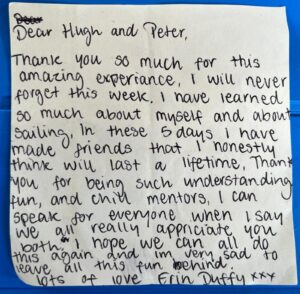 Dear Hugh and Peter,
Thank you so much for this
amazing experiance, I will never
forget this week. I have learned
so much about myself and about
sailing, In these 5 days I have
made friends that I honestly
think will last a lifetime, Thank
you for being such understanding
fun, and chill mentors, I can
speak for everyone when I say
we all really appriciate you
both. I hope we can all do
this again and im very sad to
leave all this fun behind.
lots of love Erin Duffy xxx